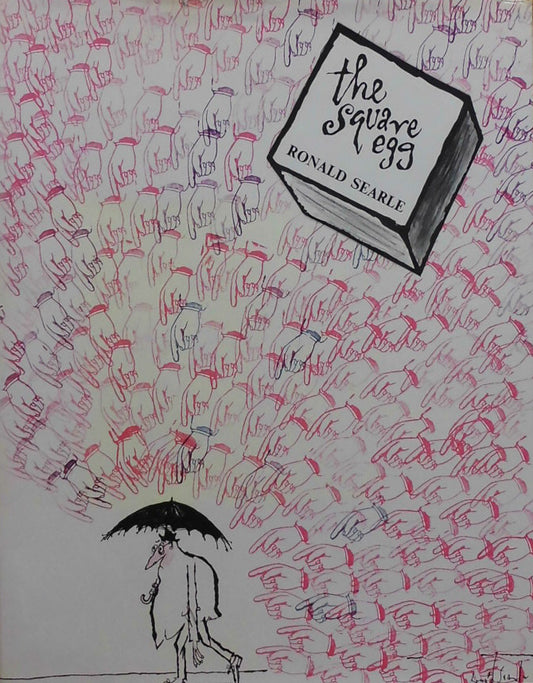 the
square
egg
RONALD SEARLE